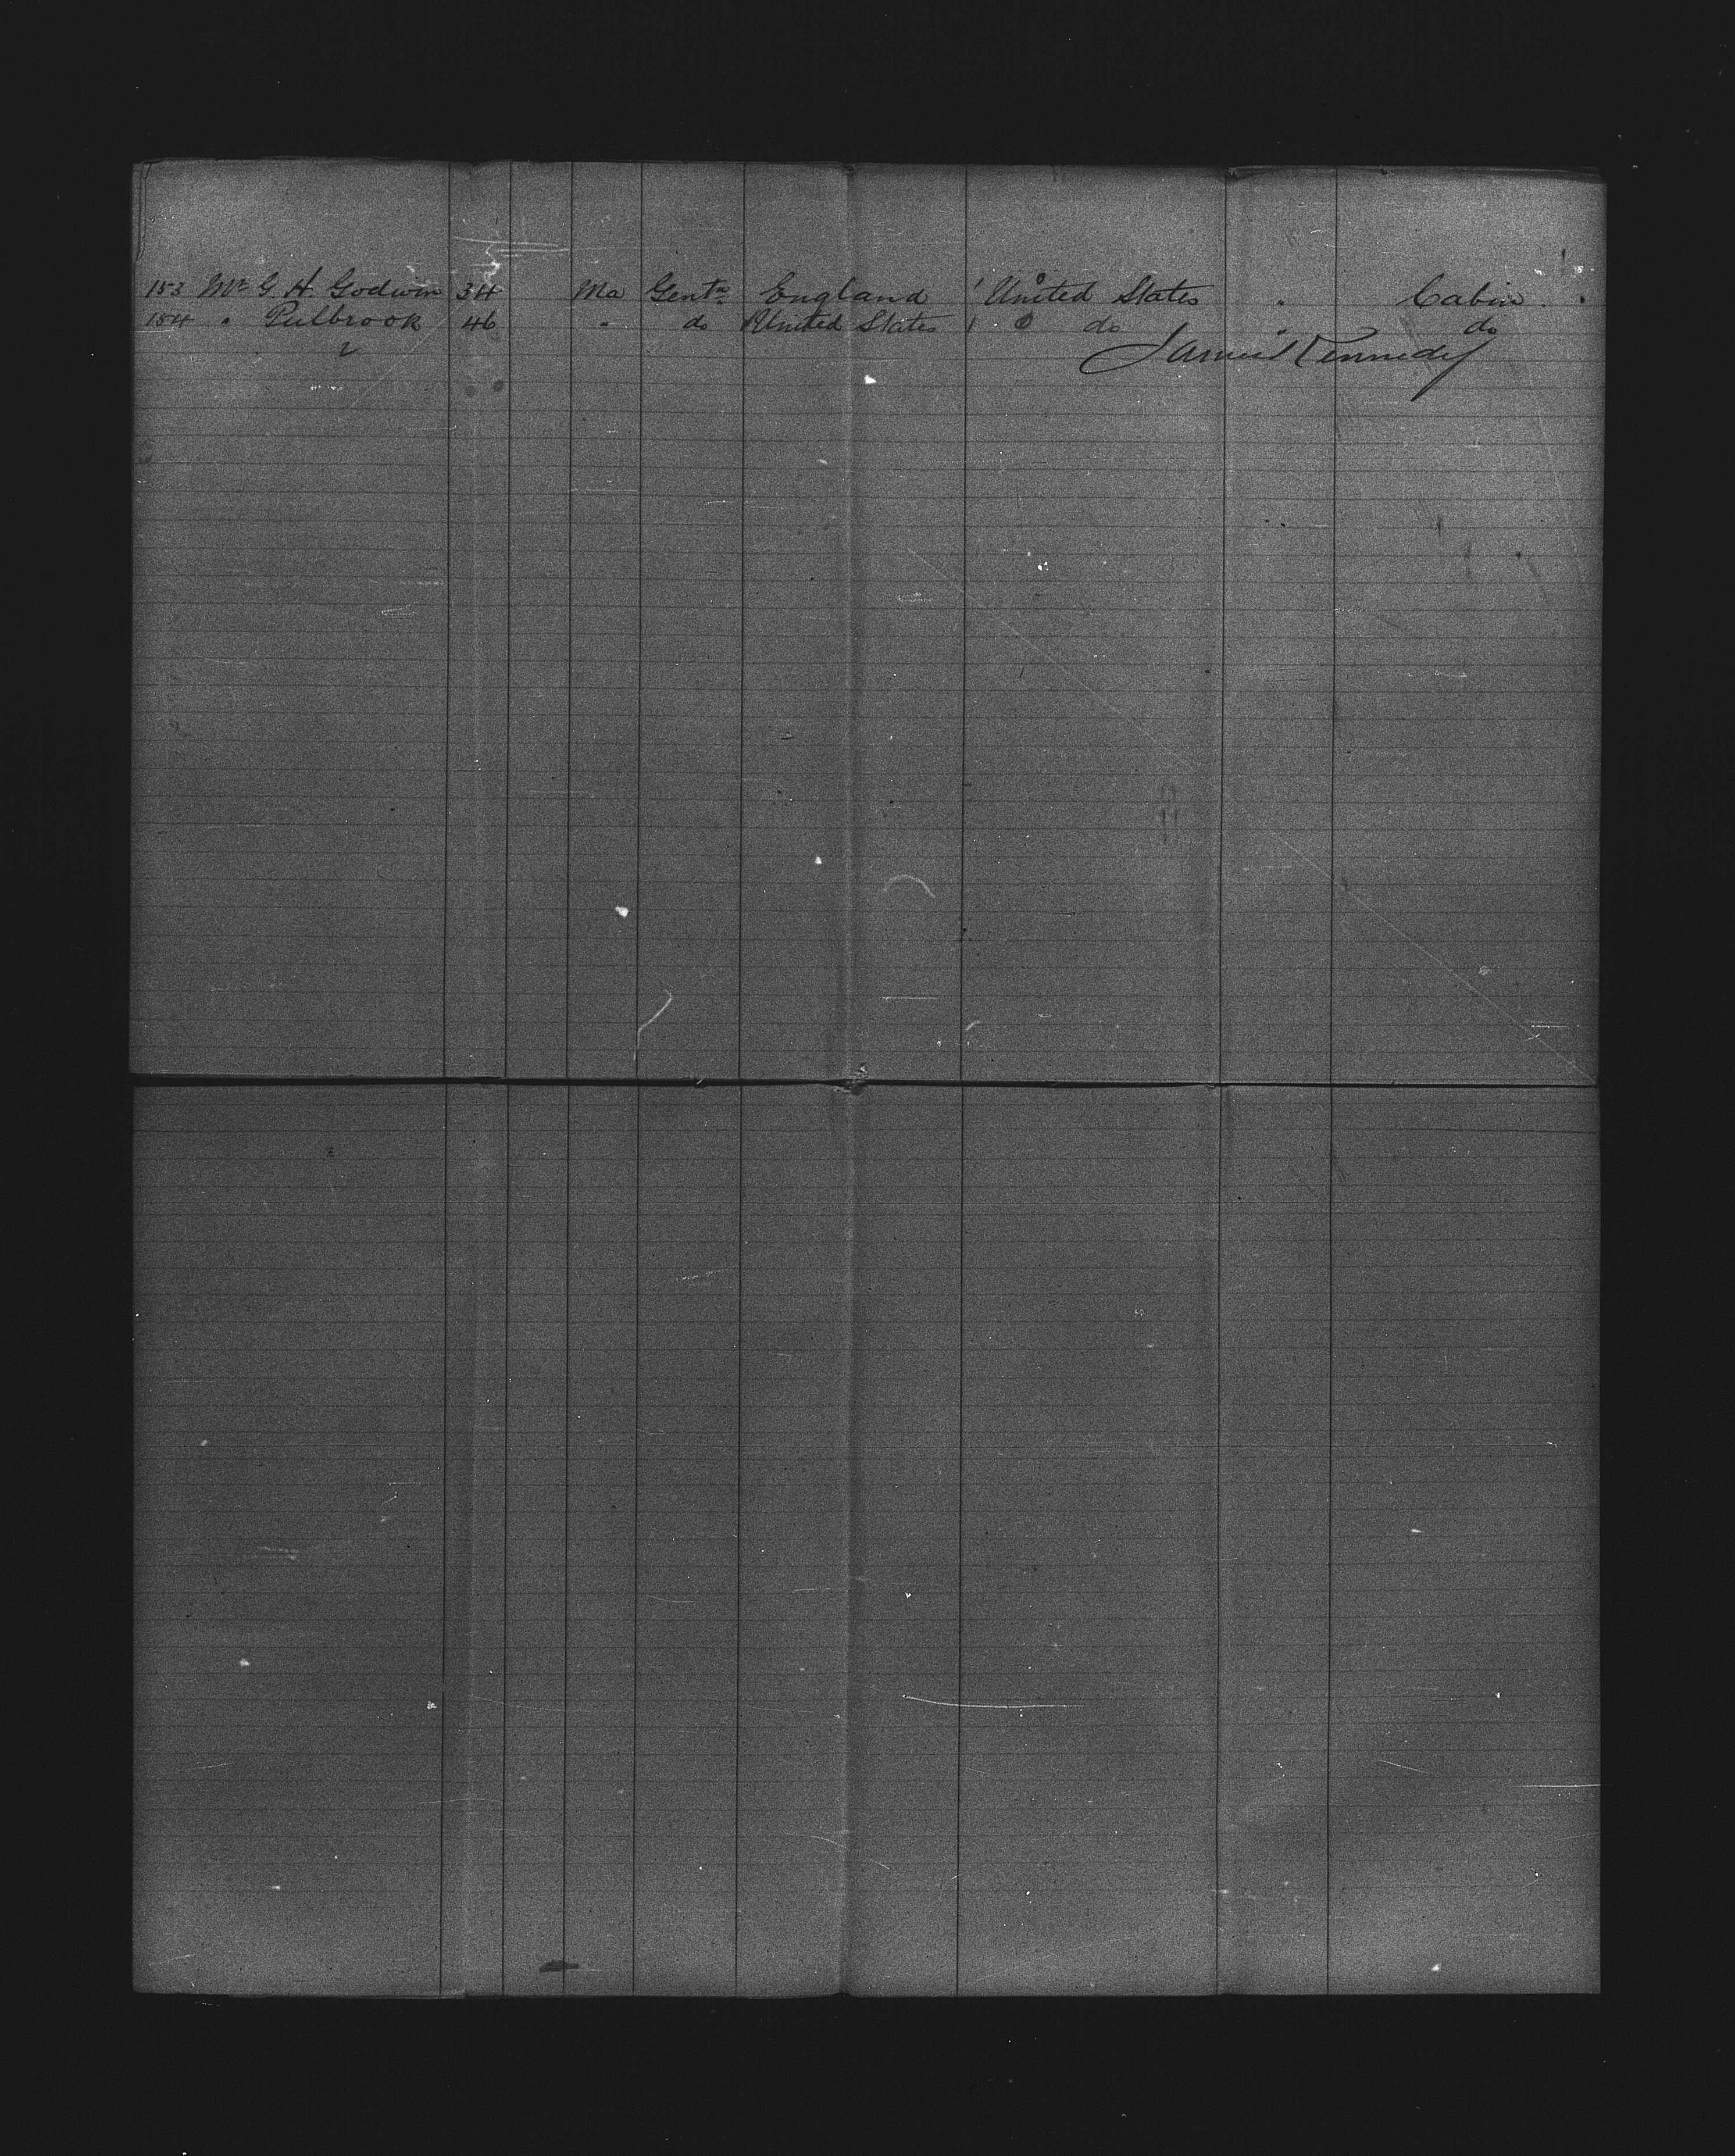 153 Mr G. H. Godwin 34 Ma Gentn England United States " Cabin
154 " Pulbrook 46 " do United States do " do
2
James Kennedy